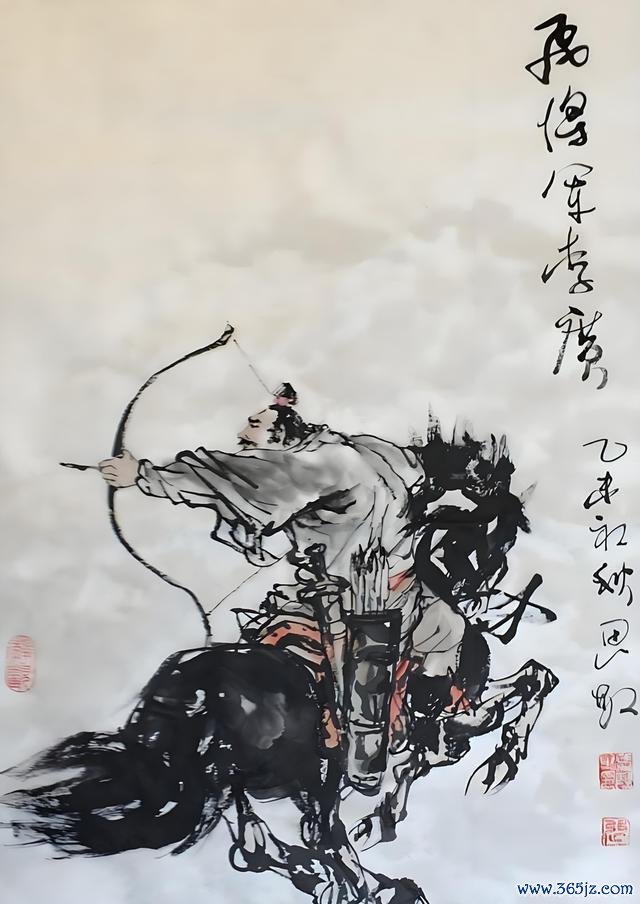 飛將軍李廣
乙未初秋思
www.365jz.com